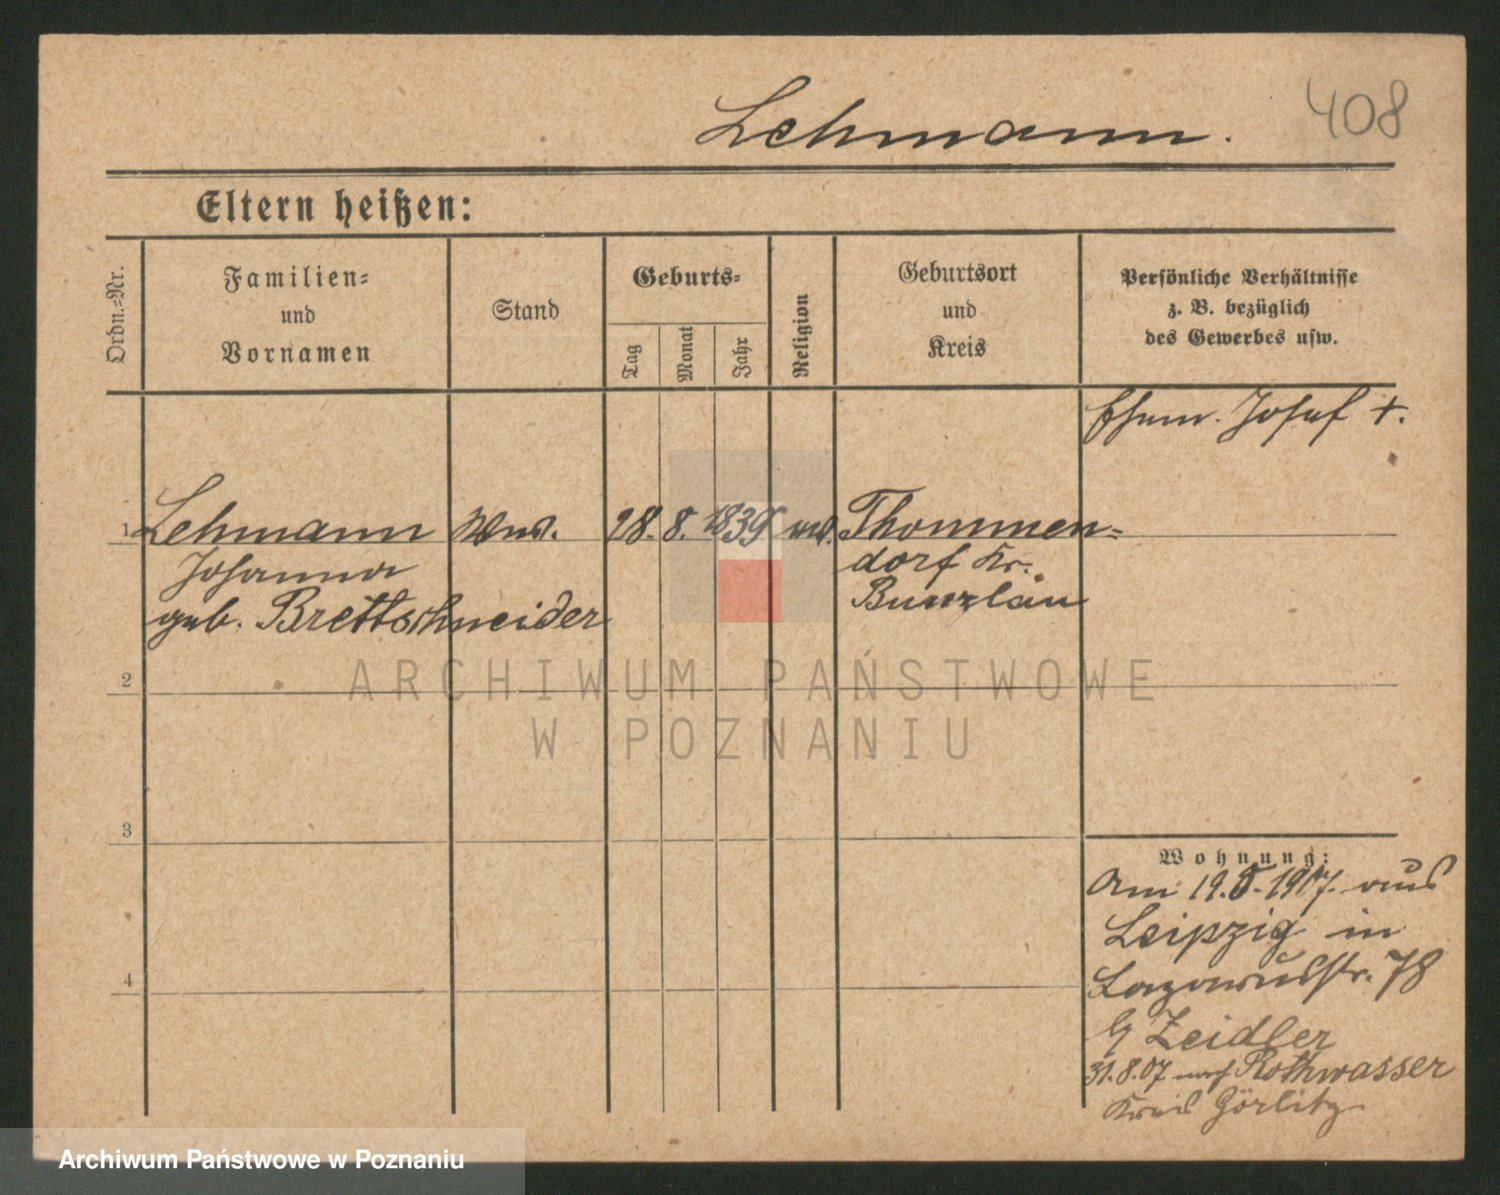 Lehmann.
408
Eltern heißen:
Ordn.-Nr.
Familien-
und
Vornamen
Stand
Geburts-
Tag
Monat
Jahr
Religion
Geburtsort
und
Kreis
Persönliche Verhältnisse
z. B. bezüglich
des Gewerbes usw.
Ehem. Josef +.
1 Lehmann Wwe. 28. 8. 1839 Thommen-
Johanna dorf Kr.
geb. Brettschneider Bunzlau
2
3
4
ARCHIWUM PAŃSTWOWE
W POZNANIU
Wohnung:
Am 19.5.1907. aus
Leipzig in
Lazarusstr. 78
b/ Zeidler
31.8.07 nach Rothwasser
Kreis Görlitz
Archiwum Państwowe w Poznaniu